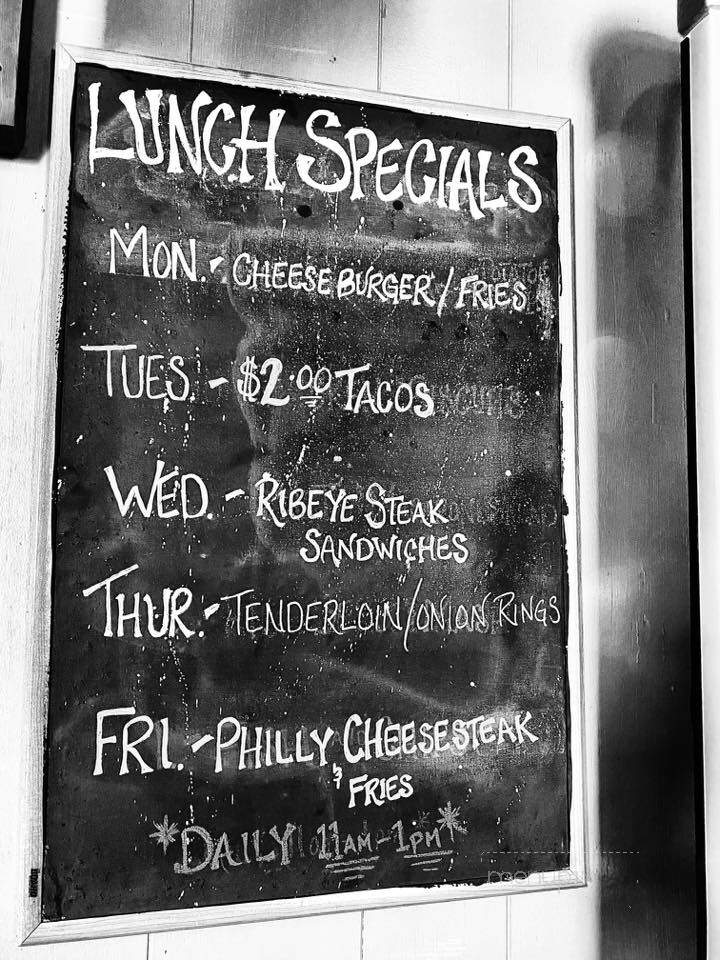 LUNCH SPECIALS
MON. - CHEESEBURGER / FRIES
TUES. - $2.00 TACOS
WED. - RIBEYE STEAK
SANDWICHES
THUR. - TENDERLOIN/ONION RINGS
FRI. - PHILLY CHEESESTEAK
& FRIES
*DAILY 11AM-1PM*